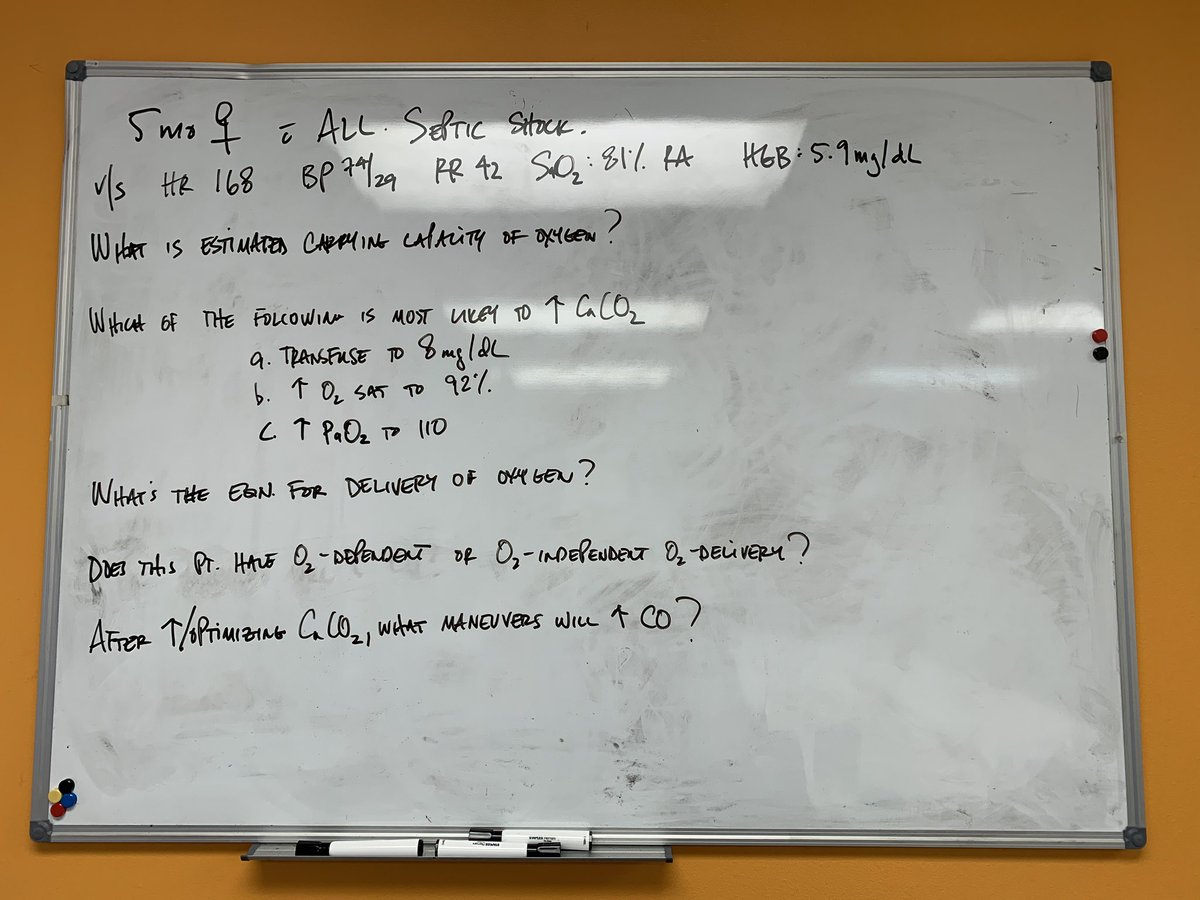 5 mo ♀ c̄ ALL. SEPTIC SHOCK.
V/S HR 168 BP 74/29 RR 42 SaO₂: 81% RA HGB: 5.9 mg/dL
WHAT IS ESTIMATED CARRYING CAPACITY OF OXYGEN?
WHICH OF THE FOLLOWING IS MOST LIKELY TO ↑ CaCO₂
a. TRANSFUSE TO 8 mg/dL
b. ↑ O₂ SAT TO 92%.
c. ↑ PaO₂ TO 110
WHAT'S THE EQN. FOR DELIVERY OF OXYGEN?
DOES THIS PT. HAVE O₂-DEPENDENT OR O₂-INDEPENDENT O₂-DELIVERY?
AFTER ↑/OPTIMIZING CaCO₂, WHAT MANEUVERS WILL ↑ CO?